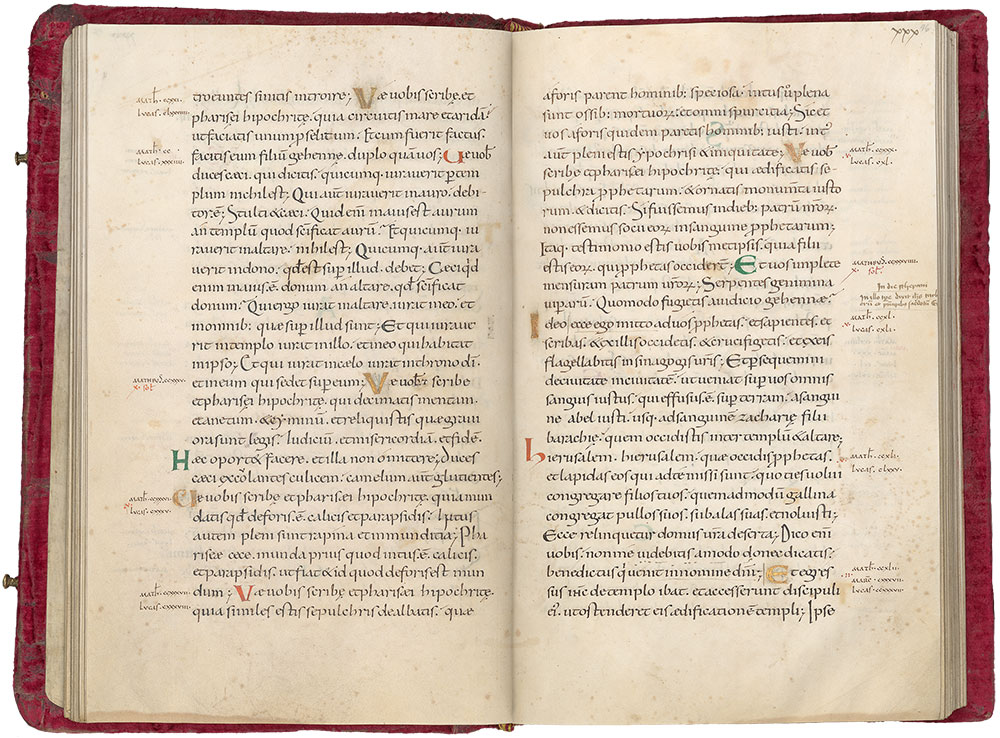 trocuntes sinitis introire; Væ uobis scribę et
pharisei hipochritę. quia circuitis mare et aridā
ut faciatis unum pselitum. Et cum fuerit factus.
facitis eum filiū gehennę. duplo quā uos; Ue uob̄
duces cæci. qui dicitis; quicumq; iurauerit p tem
plum nihil est; Qui aut̄ iurauerit in auro. debi
tor ē; Stulti & cæci. Quid em̄ maius est aurum
an templū quod sc̄ificat aurū? Et quicumq; iu
rauerit in altare. nihil est; Quicumq; aut̄ iura
uerit in dono. qd̄ est sup illud. debet; Cæci qd
enim maius ē. donum an altare. qd̄ sc̄ificat
donum? Qui ergo iurat in altare. iurat in eo. et
in omnib; quę sup illud sunt; Et qui iurau
rit in templo iurat in illo. et in eo qui habitat
in ipso; Et qui iurat in cælo iurat in throno dī.
et in eum qui sedet sup eum; Væ uobis scribę
et pharisei hipochritę. qui decimatis mentam.
et anetum. & cyminū. et reliquistis quæ graui
ora sunt legis. Iudiciū. et misericordiā. et fidē.
Hæc oport& facere. et illa non omittere; Duces
cæci excolantes culicem. camelum aut̄ glutientes;
Uæ uobis scribę et pharisei hipochritę. quia mun
datis qd̄ deforis ē. calicis et parapsidis. Intus
autem pleni sunt rapina et inmunditia; Pha
risee cæce. munda prius quod intus ē. calicis.
et parapsidis. ut fiat & id quod deforis est mun
dum; Væ uobis scribę et pharisei hipochritę.
quia similes estis sepulchris dealbatis. quæ
MATH̄. CCXXXVII.
LVCAS.
xxx
aforis parent hominib; speciosa. intus ū plena
sunt ossib; mortuor̄. et omni spurcitia; Sic et
uos. aforis quidem paretis hominib; iusti. int'
aut̄ pleni estis ypochrisi & iniquitate; Væ uob̄
scribę et pharisei hipochritę. qui ædificatis se
pulchra pphetarum. & ornatis monumta iusto
rum. & dicitis. Si fuissemus in dieb; patrū nr̄or̄.
non essemus socii eor̄ in sanguine pphetarum;
Itaq; testimonio estis uobis metipsis. quia filii
estis eor̄. qui pphetas occider̄t; Et uos implete
mensuram patrum ur̄or̄; Serpentes genimina
uiparū. Quomodo fugietis a iudicio gehennæ?
Ideo ecce ego mitto ad uos pphetas. et sapientes. et
scribas. & ex illis occidetis. & crucifigetis. et ex eis
flagellabitis in sinagogis uris; Et psequemini
de ciuitate in ciuitatē. ut ueniat sup uos omnis
sanguis iustus. qui effusus ē. sup terram. a sangui
ne abel iusti. usq; ad sanguinē zacharię filii
barachię. quem occidistis inter templū & altare;
Hierusalem. hierusalem. quæ occidis pphetas.
et lapidas eos qui ad te missi sunt. quotiens uolui
congregare filios tuos. quemadmodū gallina
congregat pullos suos. sub alas suas. et noluisti;
Ecce relinquetur domus ura deserta; Dico em̄
uobis. non me uidebitis amodo donec dicatis.
benedictus q uenit in nomine dnī; Et egres
sus ihc de templo ibat. et accesserunt discipuli
ei'. ut ostenderet eis ædificationē templi; Ipse
MATH̄. CCXL.
LVCAS. CXLI.
MATH̄. CCXLI.
LVCAS. CLXXV.
MATH̄. CCXLII.